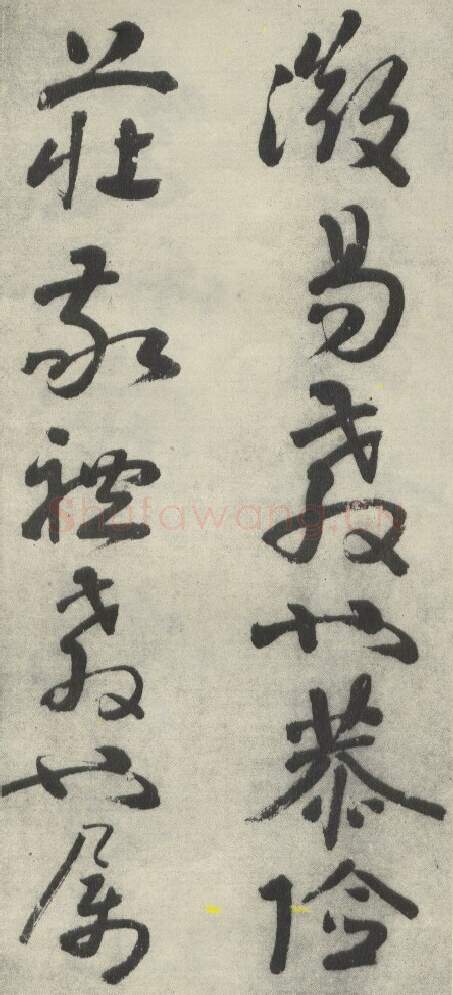 微易教也恭儉
莊敬禮教也属
Shufawang.cn